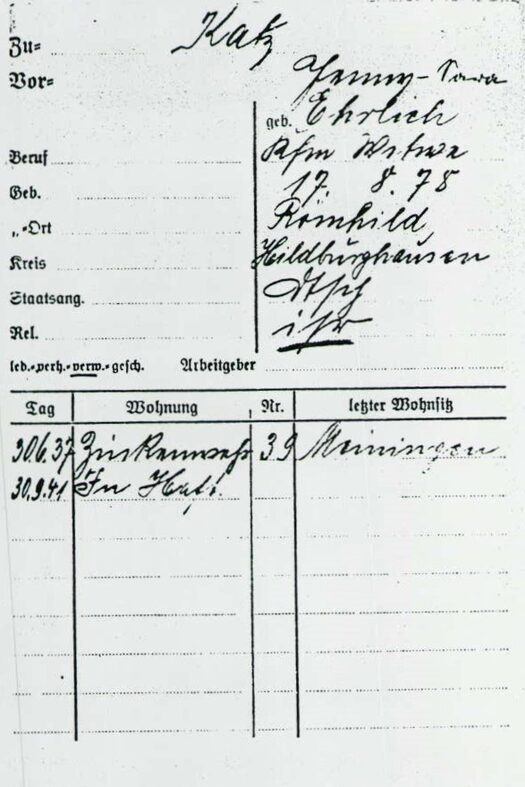 Zu= Katz
Vor= Jenny-Sara
geb. Ehrlich
Beruf Kfm Witwe
Geb. 17. 8. 78
„ =Ort Römhild
Kreis Hildburghausen
Staatsang. dtsch
Rel. isr
led.=verh.=verw.=gesch. Arbeitgeber
Tag Wohnung Nr. letzter Wohnsitz
30.6.37 39 Meiningen
30.9.41 In Haft.